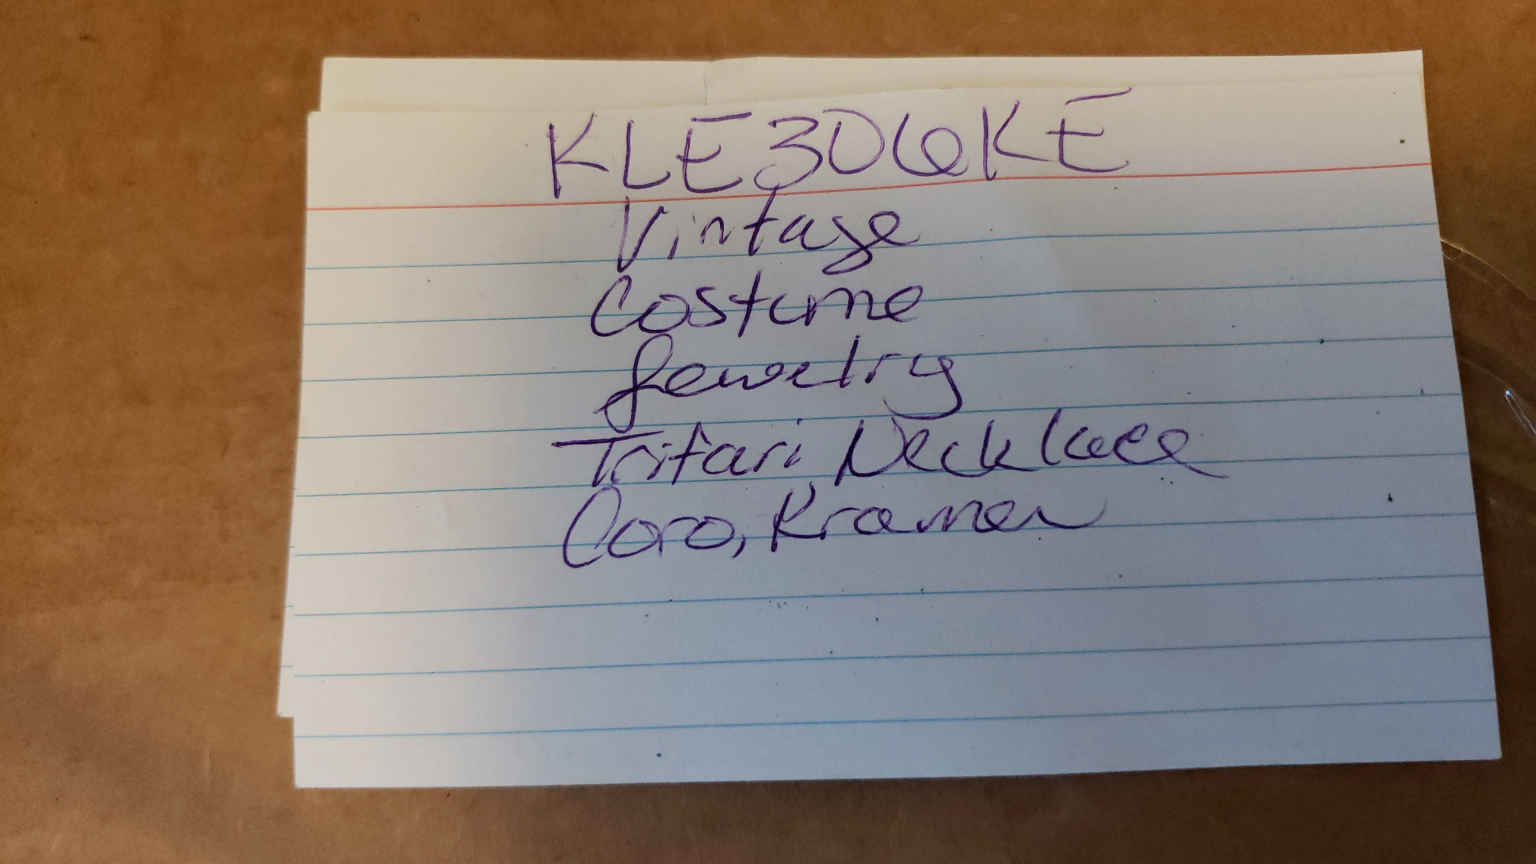 KLE306KE
Vintage
Costume
Jewelry
Trifari, Necklace
Coro, Kramer